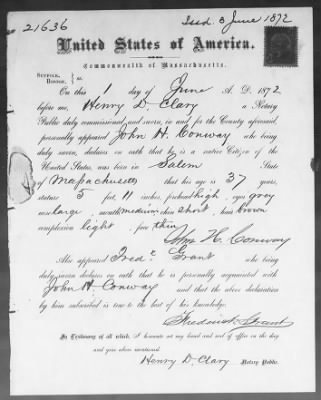 21636
Issd. 3 June 1872
United States of America.
Commonwealth of Massachusetts.
Suffolk,
Boston, ss.
On this 1 day of June A. D. 1872
before me, Henry D. Clary a Notary
Public duly commissioned and sworn, in and for the County aforesaid,
personally appeared John H. Conway who being
duly sworn, declares on oath that he is a native Citizen of the
United States, was born in Salem State
of Massachusetts that his age is 37 years,
stature 5 feet 11 inches, forehead high, eyes gray
nose large mouth medium chin short, hair brown
complexion light, face thin
John H. Conway
Also appeared Fred.k Grant who being
duly sworn declares on oath that he is personally acquainted with
John H. Conway and that the above declaration
by him subscribed is true to the best of his knowledge.
Frederick Grant
In Testimony of all which, I hereunto set my hand and seal of office on the day
and year above mentioned.
Henry D. Clary Notary Public.